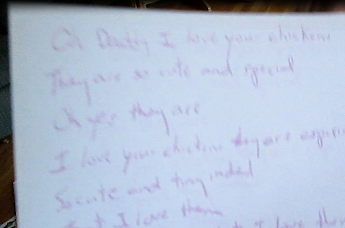 Oh Daddy I love your chickens
They are so cute and special
Oh yes they are
I love your chickens they are
So cute and tiny indeed
But I love them
I love